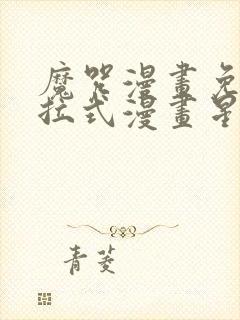 魔咒漫畫免
拉式漫畫星
青菱